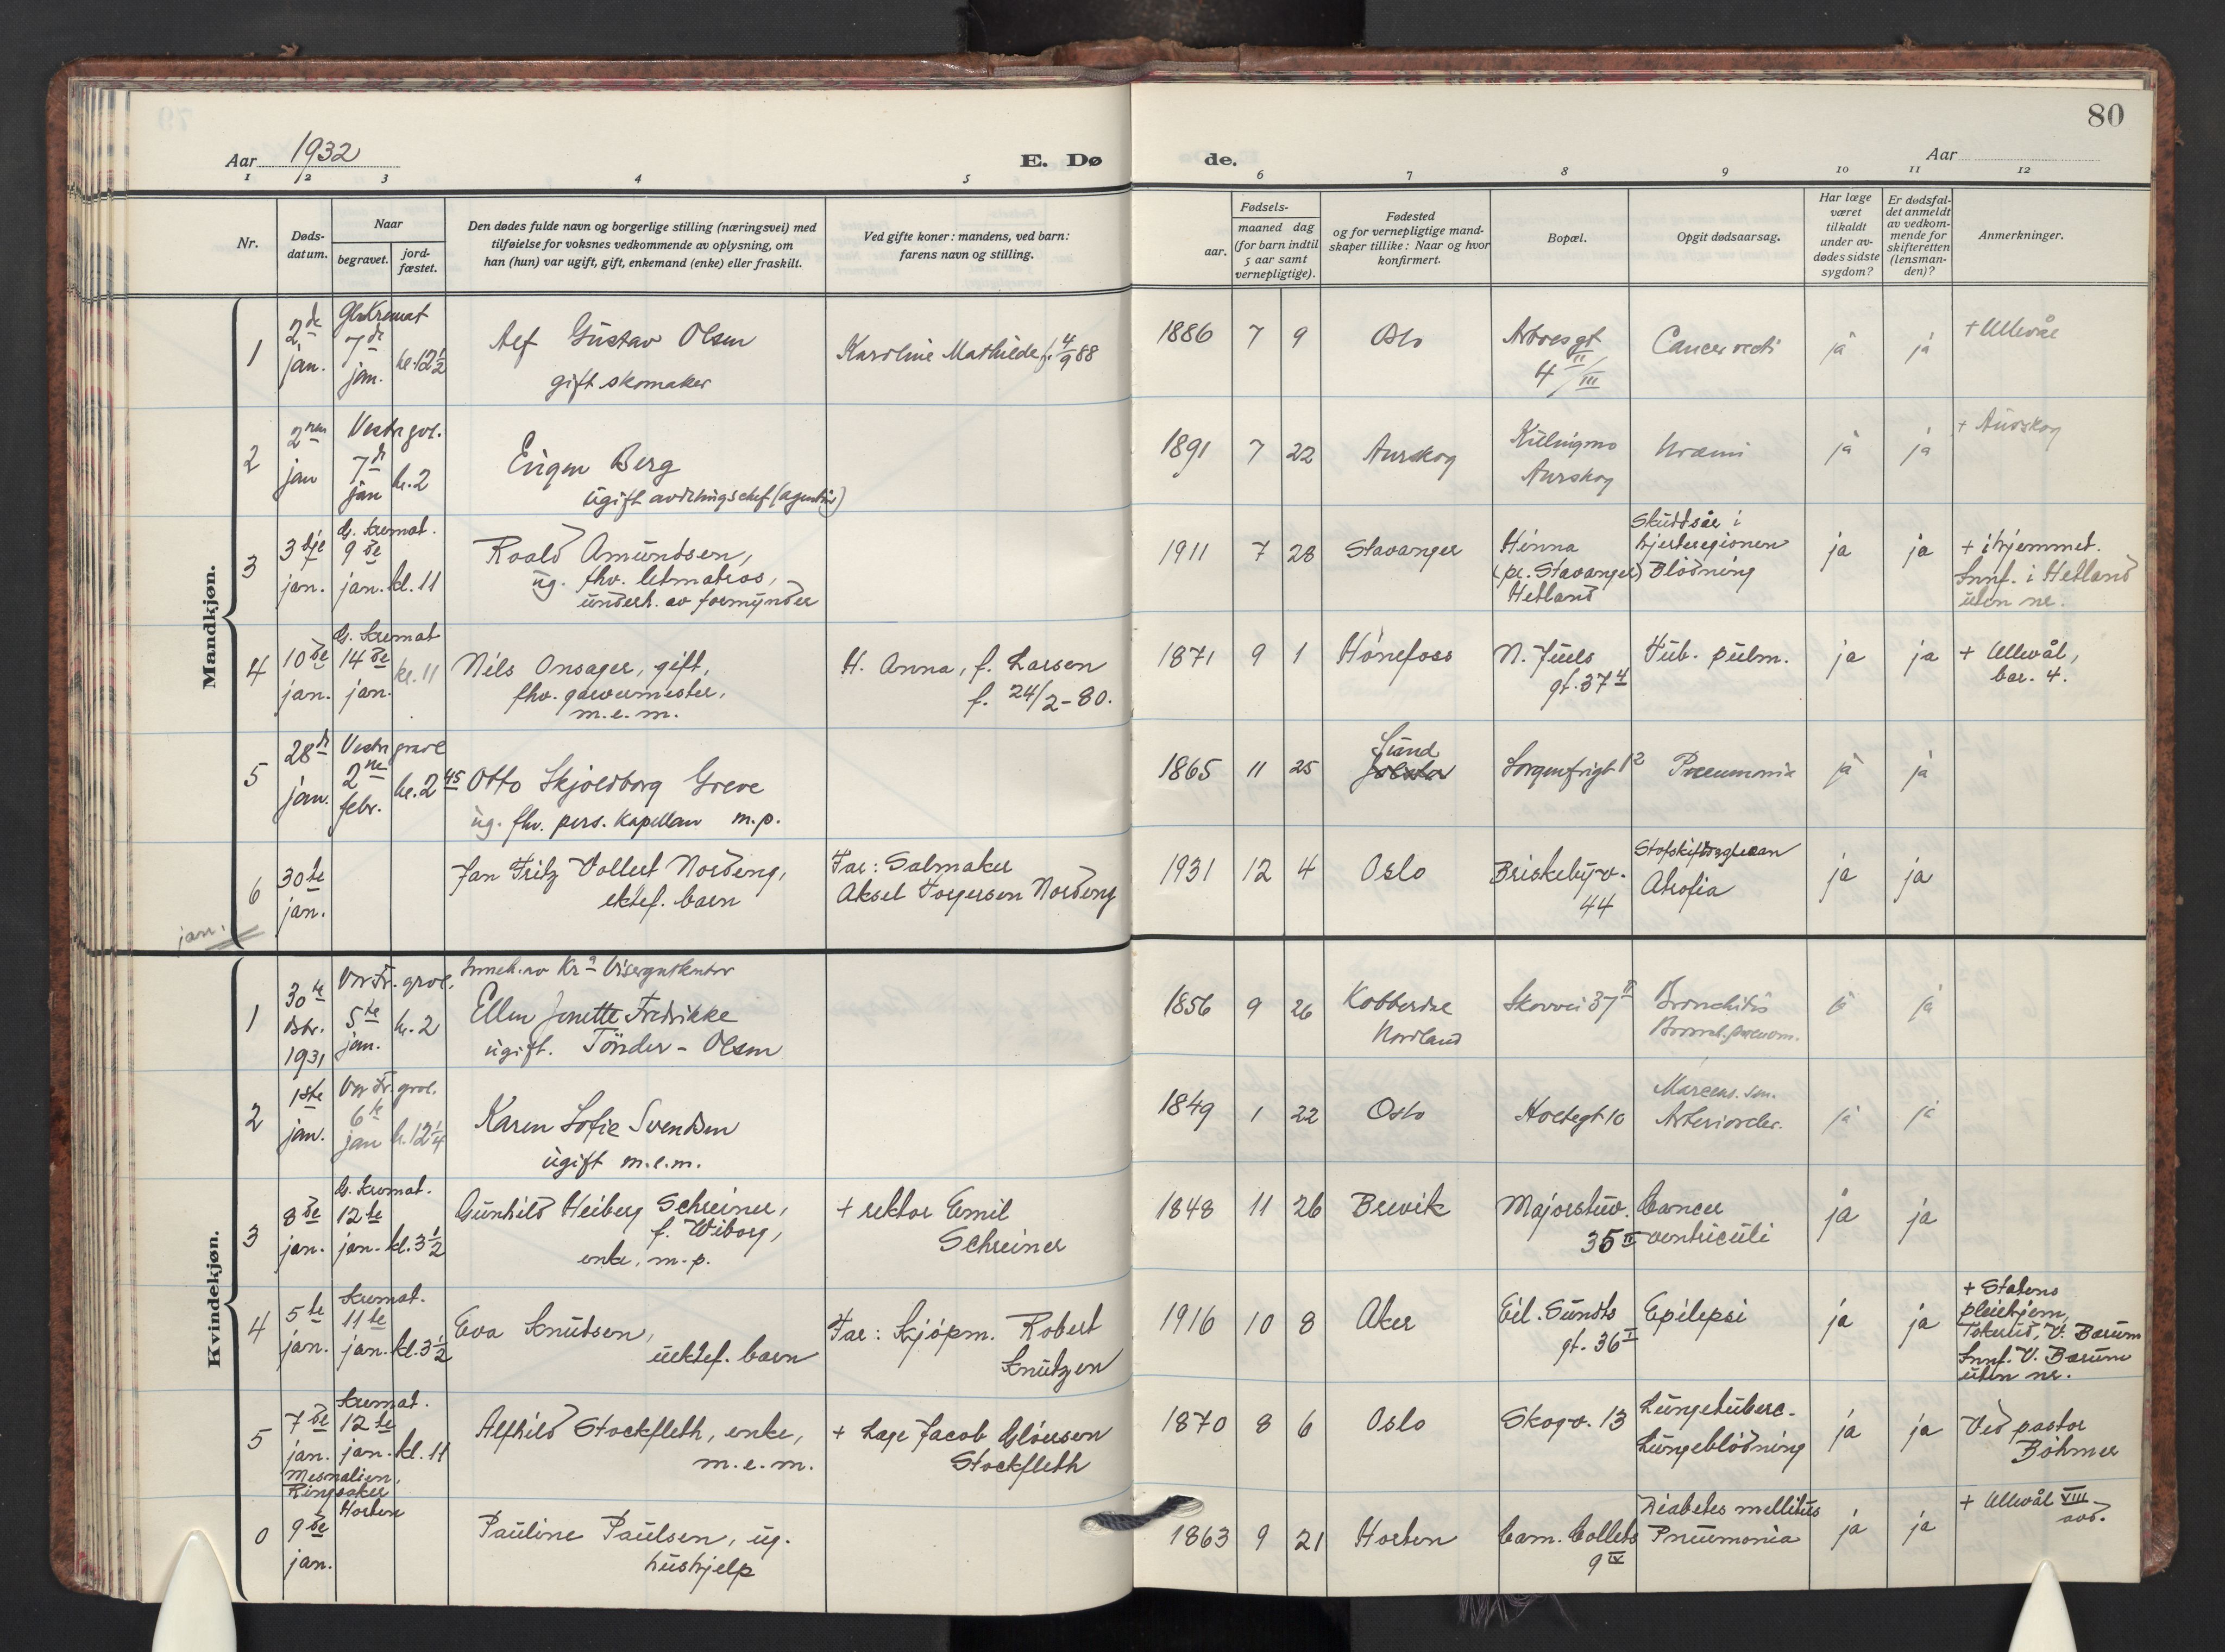 80
Aar 1932
E. Dø
de.
Aar
1 2 3 4 5
6 7 8 9 10 11 12
Nr.
Døds-
datum.
Naar
begravet.
jord-
fæstet.
Den dødes fulde navn og borgerlige stilling (næringsvei) med
tilføielse for voksnes vedkommende av oplysning, om
han (hun) var ugift, gift, enkemand (enke) eller fraskilt.
Ved gifte koner: mandens, ved barn:
farens navn og stilling.
Fødsels-
aar.
maaned dag
(for barn indtil
5 aar samt
vernepligtige).
Fødested
og for vernepligtige mand-
skaper tillike: Naar og hvor
konfirmert.
Bopæl.
Opgit dødsaarsag.
Har læge
været
tilkaldt
under av-
dødes sidste
sygdom?
Er dødsfal-
det anmeldt
av vedkom-
mende for
skifteretten
(lensman-
den)?
Anmerkninger.
Mandkjøn.
1
2de
jan.
7de
jan.
kl. 12½
Gustav Olsen
gift skomaker
Karoline Mathilde f. 4/9 88
1886 7 9 Oslo
4 II/III
Cancer recti
ja ja
+ Ullevål
2
2nen
jan
7de
jan
kl. 2
Eugen Berg
1891 7 22 Aurskog
Aurskog
Uræmi
ja ja
+ Aurskog
3
3dje
jan.
G. Kremat.
9de
jan. kl. 11
Roald Amundsen,
ug. fhv. letmatros,
underh. av formynder
1911 7 28 Stavanger
Hinna
(pr. Stavanger)
Hetland
Skuddsår i
hjerteregionen
Blødning
ja ja
+ i hjemmet.
Innf. i Hetland
uten nr.
4
10de
jan.
G. Kremat
14de
jan.
kl. 11
Nils Onsager, gift,
fhv. garvermester,
m.e.m.
H. Anna, f. Larsen
f. 24/2-80.
1871 9 1 Hønefoss
N. Juels
gt. 37 4
Tub. pulm.
ja ja
+ Ullevål,
bar. 4.
5
28de
jan.
2ne
febr.
kl. 2 45
Otto Skjoldborg Greve
ug. fhv. pers. kapellan m.p.
1865 11 25
Sund
Sorgenfrigt 1 2
Pneumonia
ja ja
6
30te
jan.
Jan Fritz Vollert Nordeng,
ektef. barn
Far: Salmaker
Aksel Torgersen Nordeng
1931 12 4 Oslo
Briskebyv.
44
Atrofia
ja ja
jan.
Kvindekjøn.
1
30te
1931
Vor Fr. grav.
5te
jan.
kl. 2
Ellen Jenette Fredrikke
ugift. Tönder - Olsen
1856 9 26
Nordland
Skovvei 37 II
Bronchitis
ja
2
1ste
jan.
Vor Fr. grav.
6te
jan kl. 12¼
Karen Sofie Svendsen
ugift m.e.m.
1849 1 22 Oslo
Holtegt 10
ja ja
3
8de
jan.
G. Kremat.
12te
jan. kl. 3½
Gunhild Heiberg Schreiner,
f. Wiborg,
enke, m.p.
+ rektor Emil
Schreiner
1848 11 26 Brevik
Majorstuv.
35 II
Cancer
ventriculi
ja ja
4
5te
jan.
Kremat.
11te
jan. kl. 3½
Eva Knudsen,
uektef. barn
Far: Kjøpm. Robert
Knutzen
1916 10 8 Aker
Eil. Sundts
gt. 36 I
Epilepsi
ja ja
+ Statens
pleiehjem,
Tokerud, V. Bærum
Innf. V. Bærum
uten nr.
5
7de
jan.
Mesnalien,
Ringsaker
Kremat.
12te
jan. kl. 11
Alfhild Stockfleth, enke,
m.e.m.
+ Lage Jacob Gløersen
Stockfleth
1870 8 6 Oslo
Skogv. 13
Lungetuberc.
Lungeblødning
ja ja
Ved pastor
Böhmer
0
9de
jan.
Horten
Pauline Paulsen, ug.
hushjelp
1863 9 21 Horten
Cam. Colletts
9 IV
Diabetes mellitus
Pneumonia
ja ja
+ Ullevål VIII
avd.